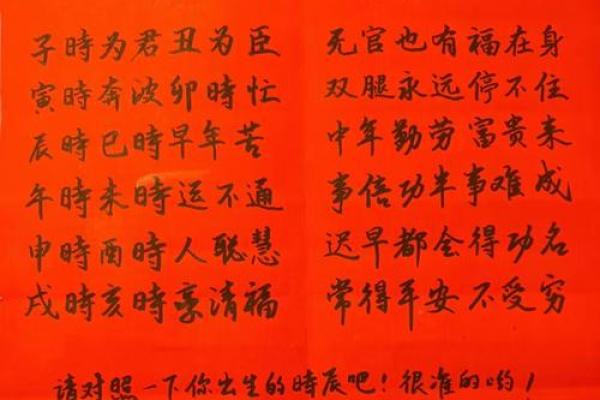 子時为君丑为臣 无官也有福在身
寅時奔波卯時忙 双腿永远停不住
辰時巳時早年苦 中年勤劳富贵来
年時未時运不通 事倍功半事难成
申時酉時人聪慧 迟早都会得功名
戌時亥時享清福 常得平安不受穷
请对照一下你出生的时辰吧！很准的哟！